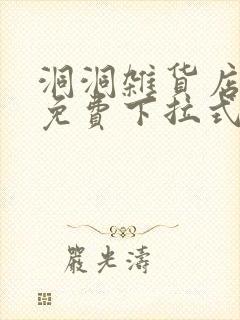 洞洞雑货店
免費下拉式
嚴光濤